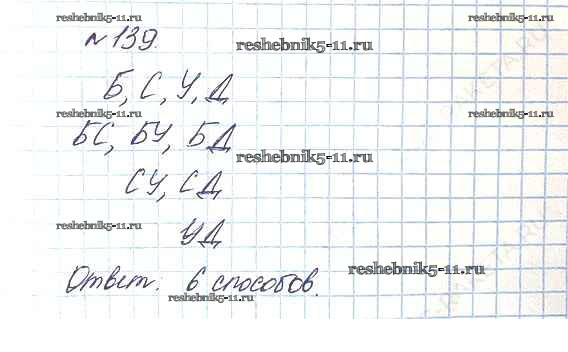 reshebnik5-11.ru
№139. reshebnik5-11.ru
Б, С, У, Д
reshebnik5-11.ru reshebnik5-11.ru
БС, БУ, БД
reshebnik5-11.ru
СУ, СД
reshebnik5-11.ru reshebnik5-11.ru
УД
Ответ: 6 способов.
reshebnik5-11.ru
reshebnik5-11.ru